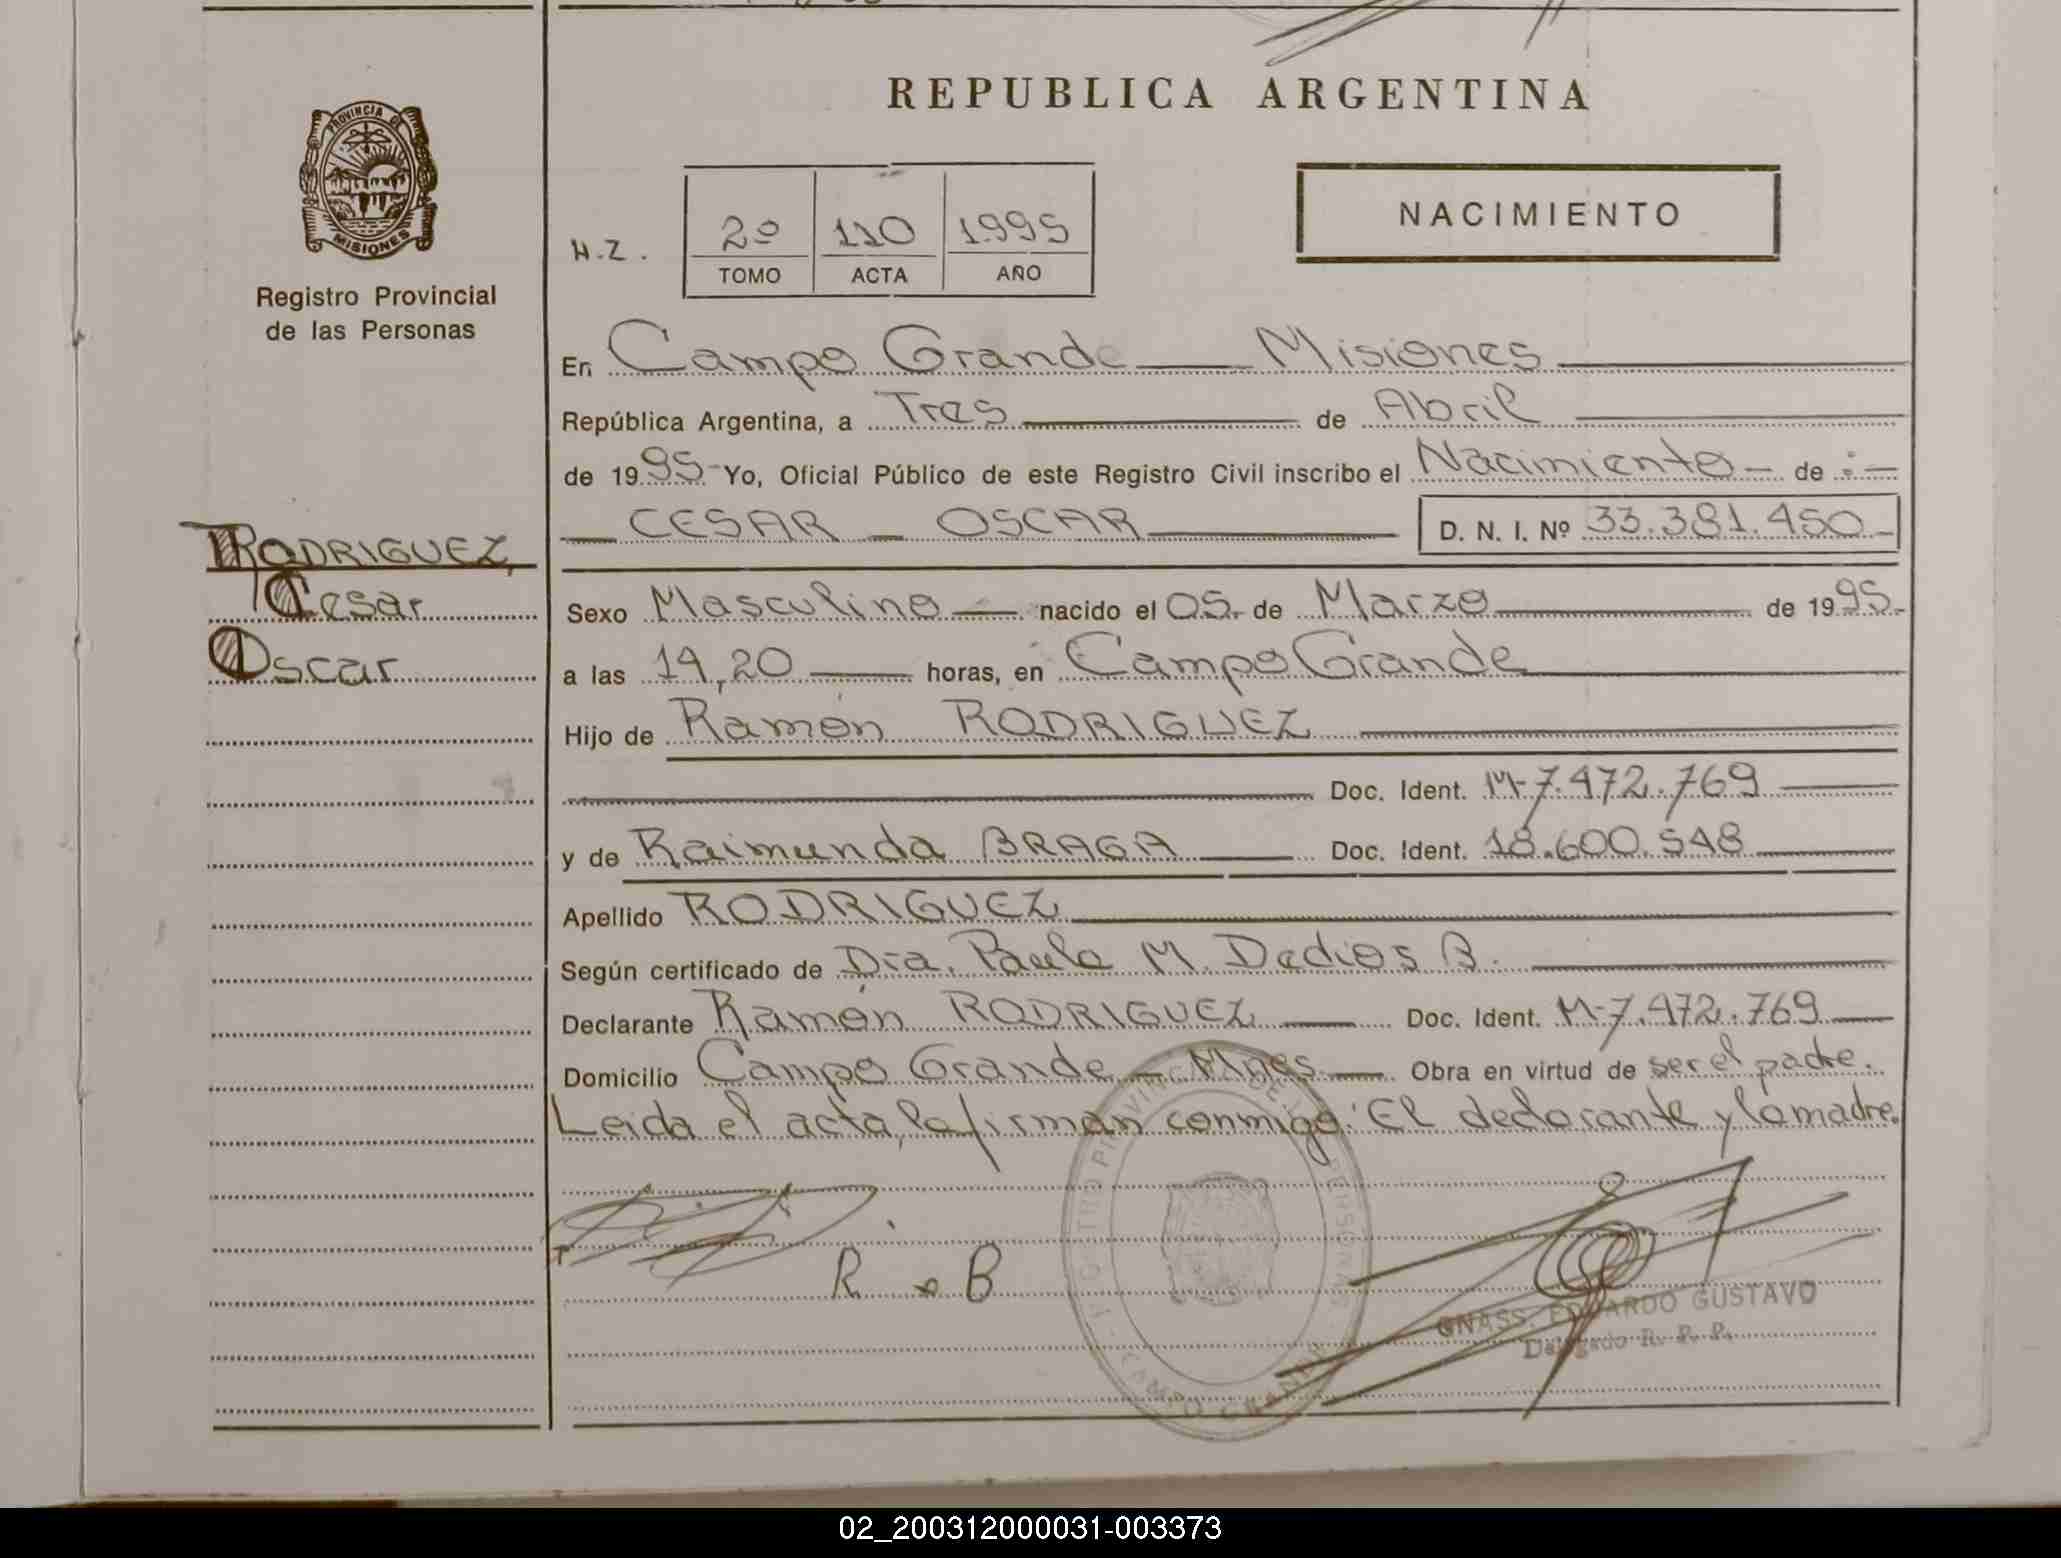 REPUBLICA ARGENTINA
PROVINCIA DE
MISIONES
Registro Provincial
de las Personas
H.Z.
2º 110 1995
TOMO ACTA AÑO
NACIMIENTO
En Campo Grande — Misiones
República Argentina, a Tres de Abril
de 1995- Yo, Oficial Público de este Registro Civil inscribo el Nacimiento - de :-
CESAR - OSCAR D. N. I. Nº 33.381.450-
RODRIGUEZ,
Cesar
Oscar
Sexo Masculino — nacido el 05. de Marzo de 1995.
a las 14,20 horas, en Campo Grande
Hijo de Ramón RODRIGUEZ
Doc. Ident. M-7.472.769
y de Raimunda BRAGA Doc. Ident. 18.600.548
Apellido RODRIGUEZ
Según certificado de Dra. Paula M. Dedios B.
Declarante Ramón RODRIGUEZ Doc. Ident. M-7.472.769
Domicilio Campo Grande - Mnes. Obra en virtud de ser el padre.
Leida el acta, la firman conmigo: El declarante y la madre.
R . B
REGISTRO PROVINCIAL DE LAS PERSONAS
CAMPO GRANDE
GNASS, EDUARDO GUSTAVO
Delegado R. P. P.
02_200312000031-003373